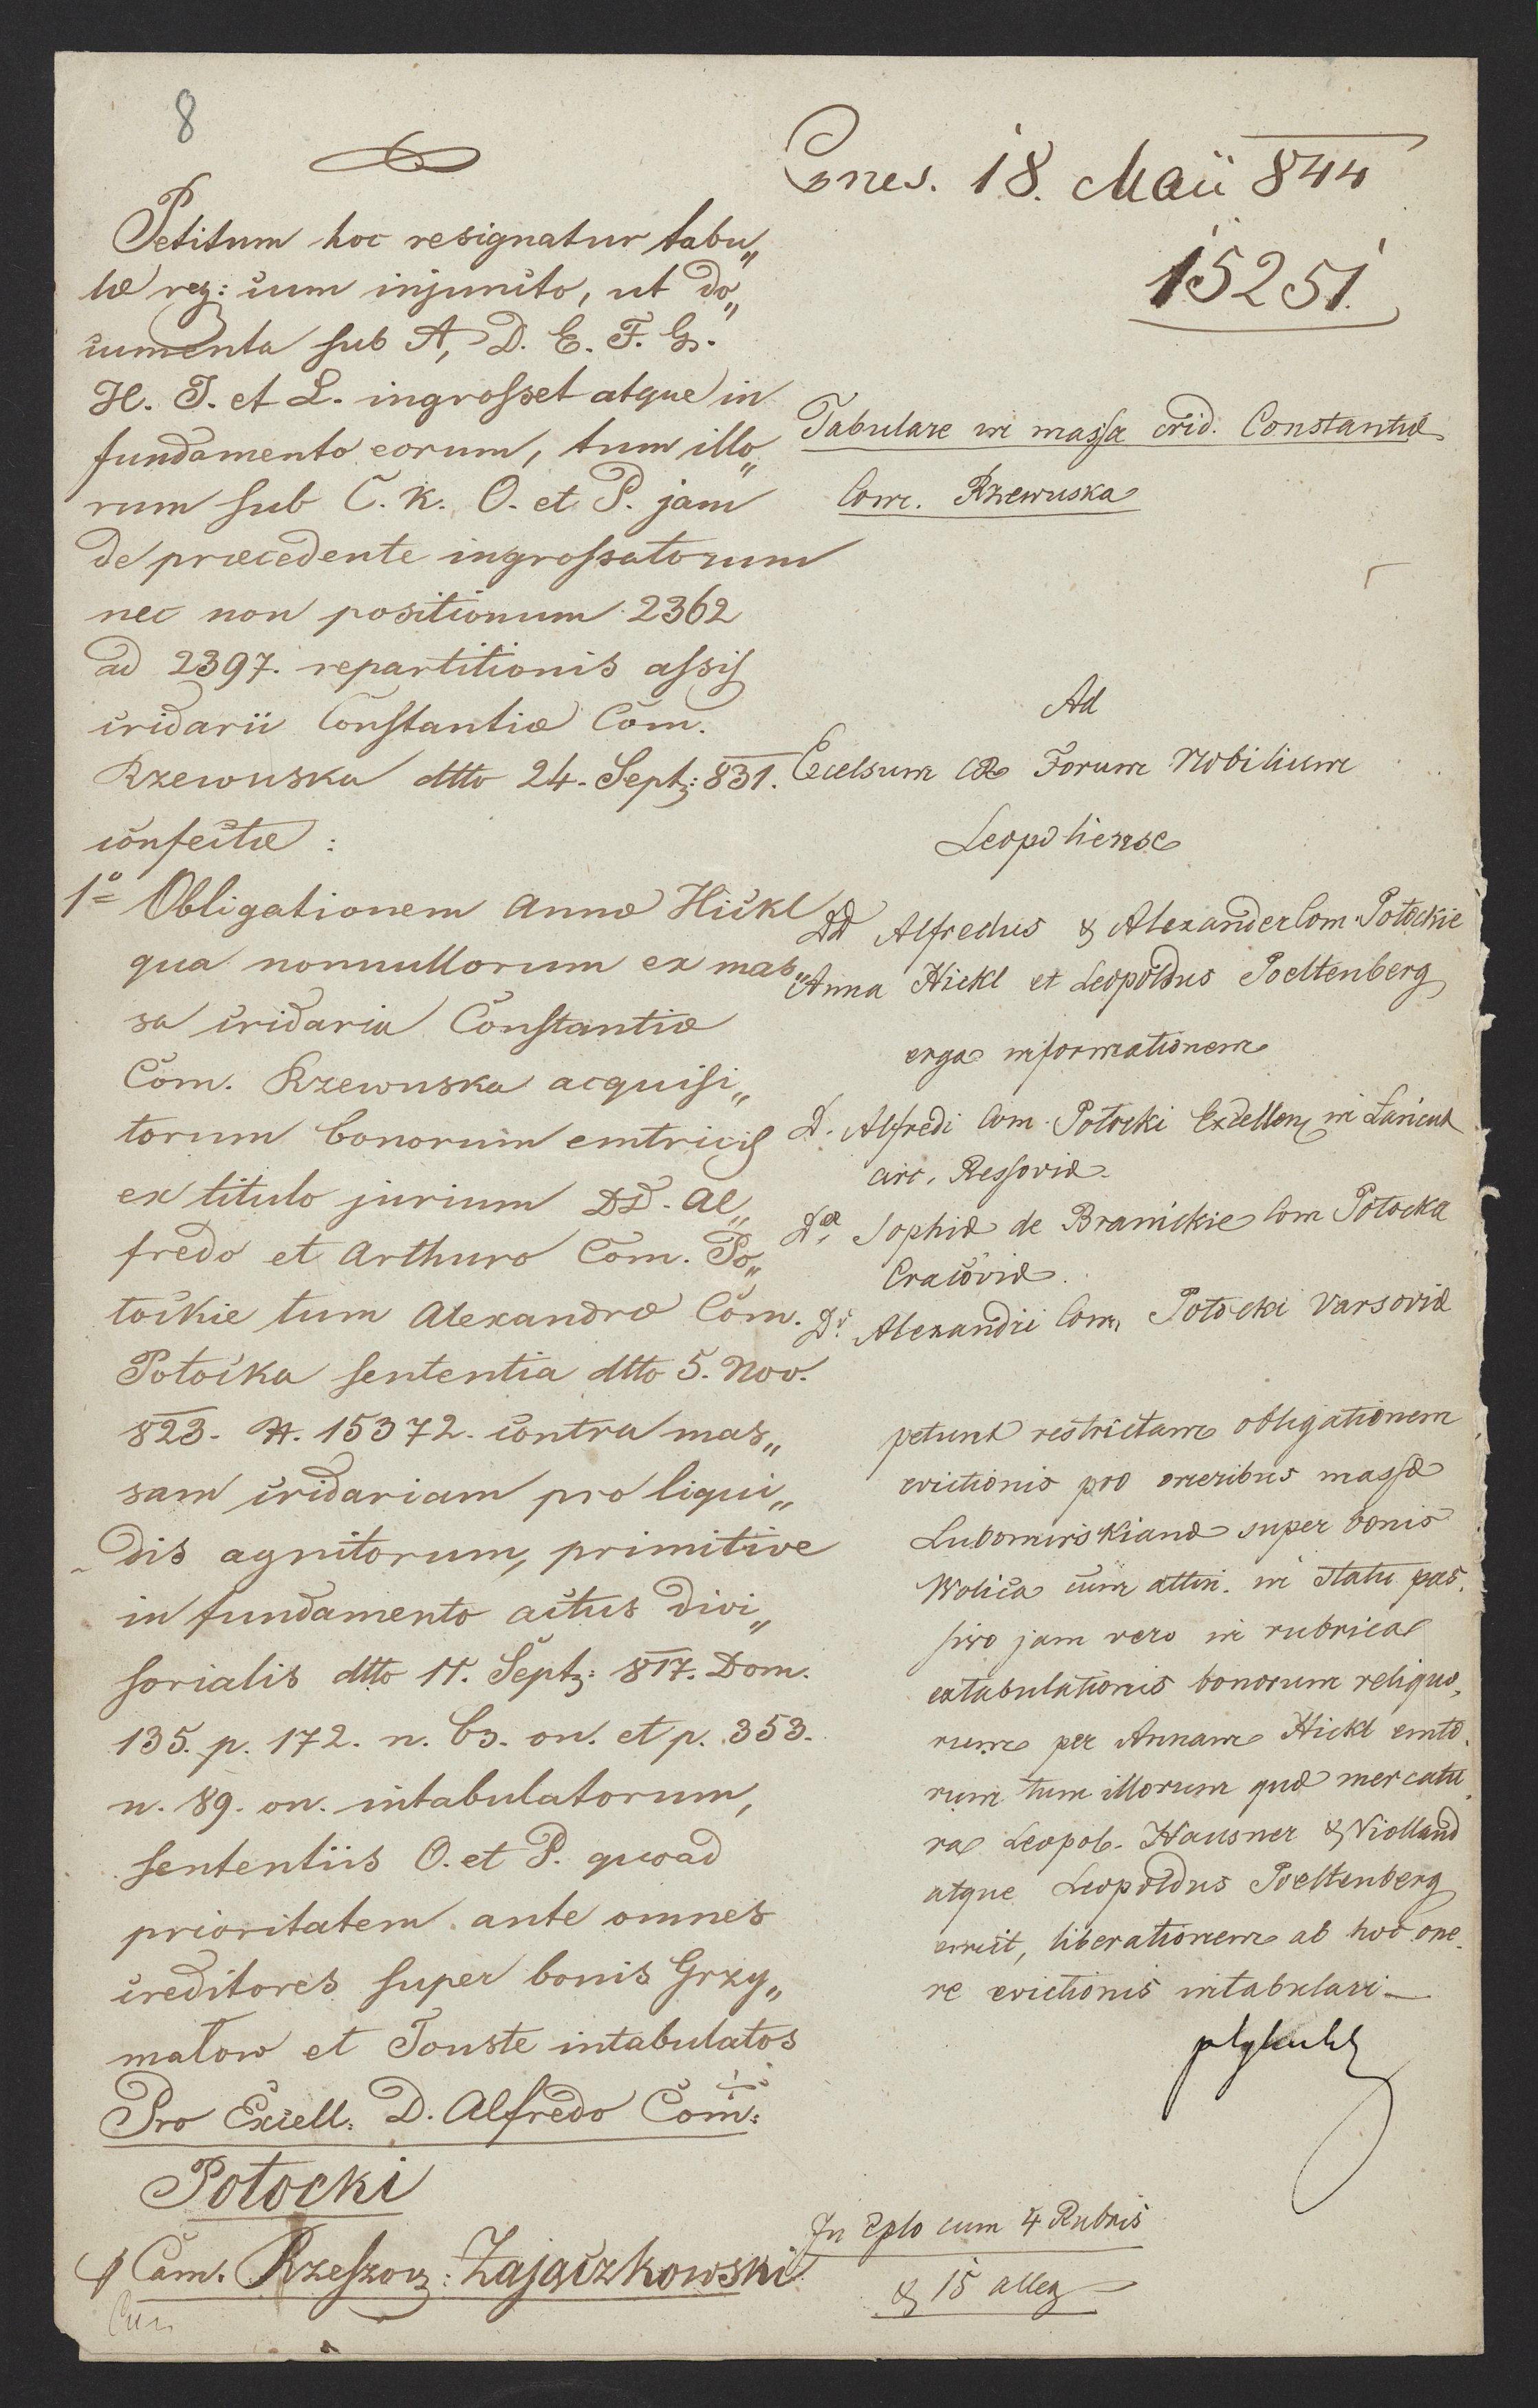 8
Petitum hoc resignatur tabu„
læ reg: cum injuncto, ut do„
cumenta sub A, D. E. F. G.
H. J. et L. ingrosset atque in
fundamento eorum, tum illo„
rum sub C. K. O. et P. jam
de præcedente ingrossatorum
nec non positionum 2362
ad 2397. repartitionis assis
cridarii Constantiæ Com.
Rzewuska dtto 24. Sept: 831.
confectæ :
1º Obligationem Annæ Hickl
qua nonnullorum ex mas„
sa cridaria Constantiæ
Com. Rzewuska acquisi„
torum bonorum emtricis
ex titulo jurium DD. Al„
fredo et Arthuro Com. Po„
tockie tum Alexandræ Com.
Potocka sententia dtto 5. Nov.
823. N. 15372. contra mas„
sam cridariam pro liqui„
dis agnitorum, primitive
in fundamento actus divi„
sorialis dtto 11. Sept: 817. Dom.
135. p. 172. n. 63. on. et p. 353.
n. 89. on. intabulatorum,
sententiis O. et P. quoad
prioritatem ante omnes
creditores super bonis Grzy„
matow et Touste intabulatos
Pro Excell: D. Alfredo Com:
Potocki
Cam. Rzeszov: Zajączkowski
Pnes. 18. Maii 844
15251.
Tabulare in massa crid. Constantiæ
Com. Rzewuska
Ad
Excelsum CR Forum Nobilium
Leopoliense
DD Alfredus & Alexander Com. Potockie
Anna Hickl et Leopoldus Poeltenberg
erga informationem
D. Alfredi Com. Potocki Excellenz in Lancut
circ. Ressoviæ
Dæ Sophiæ de Branickie Com Potocka
Cracoviæ.
Di Alexandri Com. Potocki Varsoviæ
petunt restrictam obligationem
evictionis pro oneribus massæ
Lubomirskianæ super bonis
Wolica cum attin. in statu pas.
sivo jam vero in rubrica
extabulationis bonorum reliquo.
rum per Annam Hickl emto.
rum tum illorum quæ mercatu.
ra Leopol. Hausner & Violland
atque Leopoldus Poeltenberg
emit, liberationem ab hoc one.
re evictionis intabulari
In Eplo cum 4 Rubris
& 15 alleg